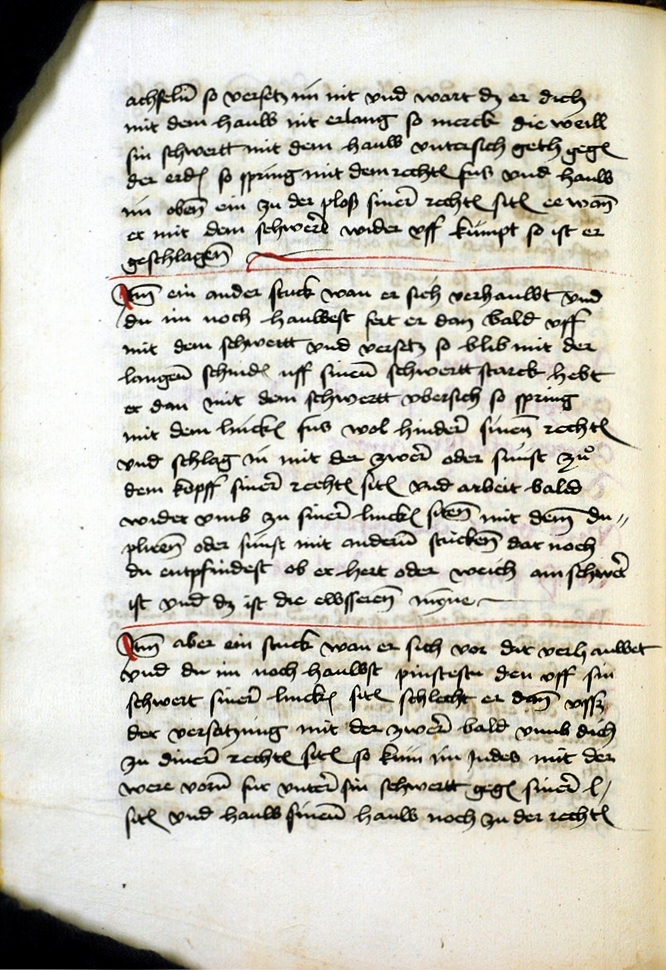 achseln so versetz im nit vnd wart dz er dich
mit dem hauw nit erlang so merck die weill
sin schwertt mit dem hauw vntersich geth gegen
der erden so spring mit dem rechten fus vnd hauw
im oben ein zu der ploß siner rechten siten ee wan
er mit dem schwert wider vff kumpt so ist er
geschlagen
Item ein ander stuck wan er sich verhauwt vnd
du im noch hauwest fert er dan bald vff
mit dem schwertt vnd versetz so blib mit der
langen schniden vff sinem schwertt starck hebt
er dan mit dem schwertt vbersich so spring
mit dem lincken fus wol hinder sinen rechten
vnd schlag in mit der zwer oder sunst zu
dem kopff siner rechten siten vnd arbeit bald
wider vmb zu siner lincken siten mit dem du=
plieren oder sunst mit andern stucken dar noch
du entpfindest ob er hert oder weich am schwert
ist vnd dz ist die ewsseren nyme
Item aber ein stuck wan er sich vor dir verhauwet
vnd du im noch hauwst pindestu den vff sin
schwert siner lincken siten schlecht er dan vsß
der versatzung mit der zwer bald vmb dich
zu diner rechten siten so kum im Indes mit der
were vorn fur vnter sin schwertt gegen siner l
siten vnd hauw sinem hauw noch zu der rechten